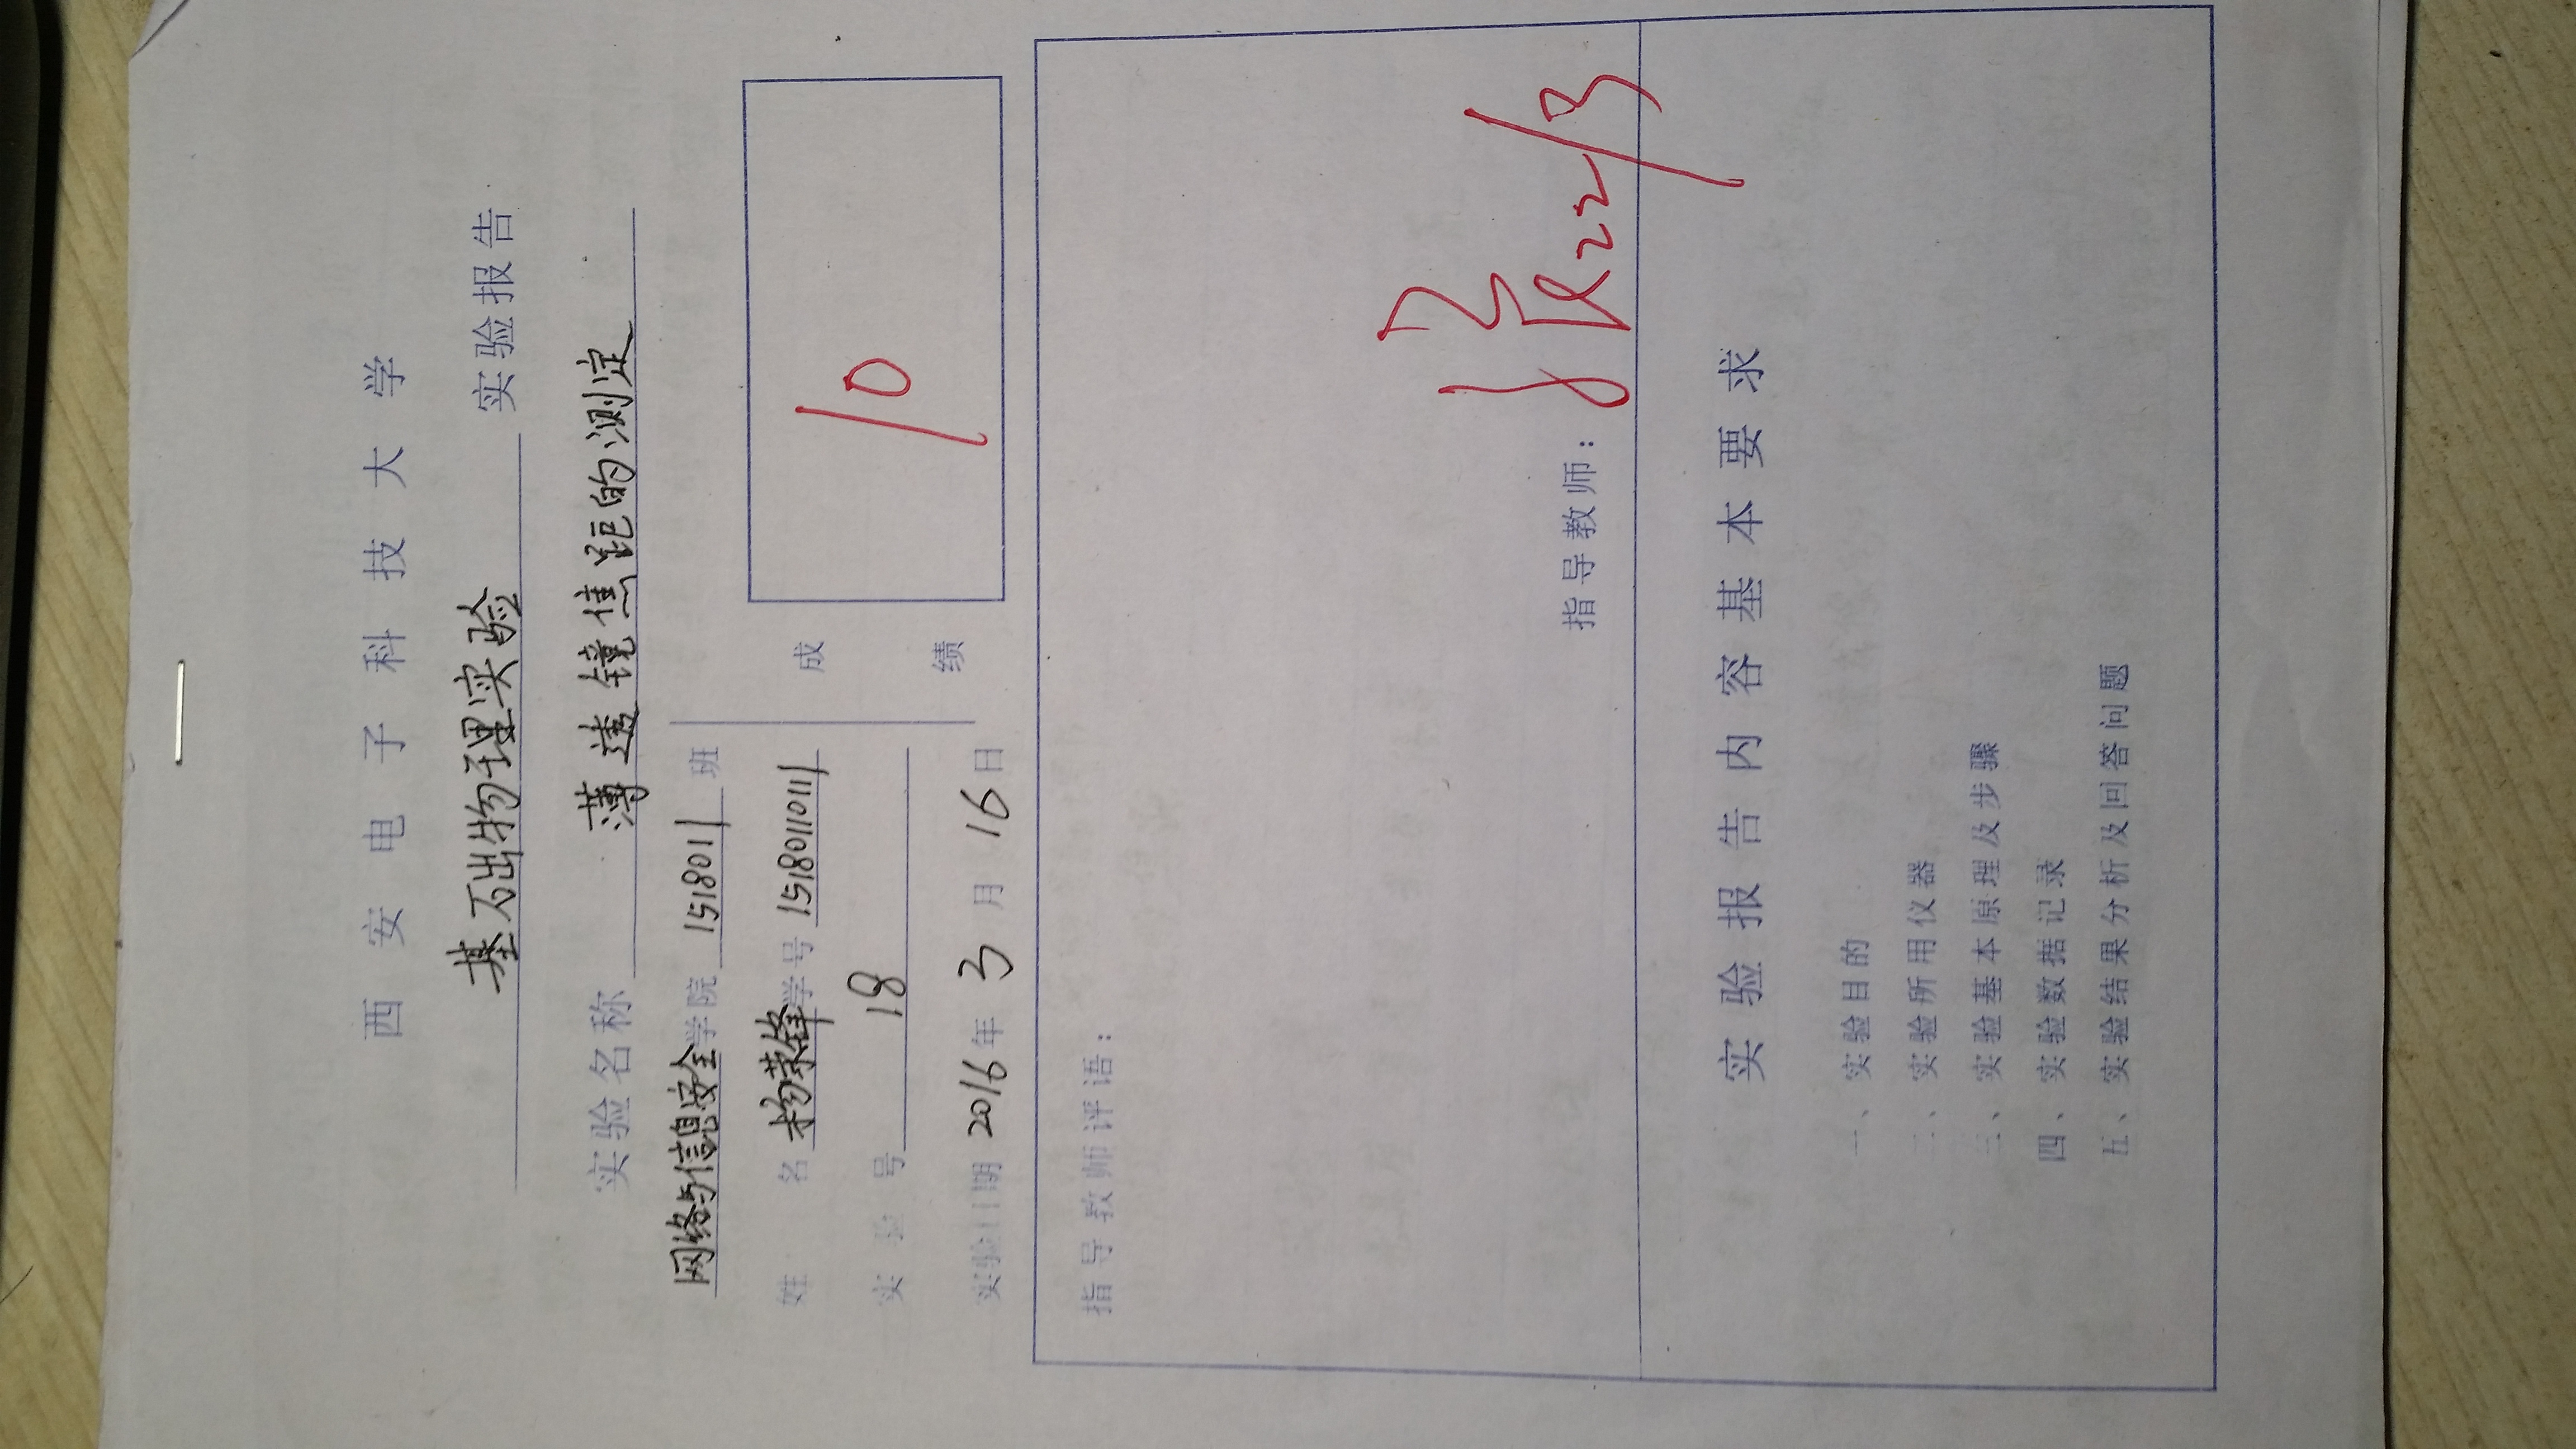 西安电子科技大学
基础物理实验 实验报告
实验名称 薄透镜焦距的测定
网络与信息安全学院 1518011 班
姓 名 杨荣锋 学号 15180110111
实 验 号 18
实验日期 2016 年 3 月 16 日
成 绩
10
指导教师评语:
指导教师: 22/3
实验报告内容基本要求
一、实验目的
二、实验所用仪器
三、实验基本原理及步骤
四、实验数据记录
五、实验结果分析及回答问题